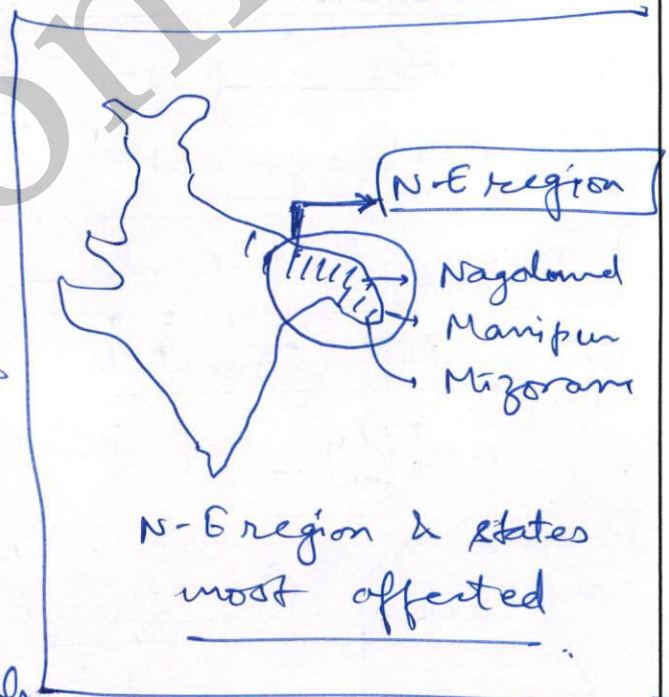 N-E region
Nagaland
Manipur
Mizoram
N-E region & states
most affected